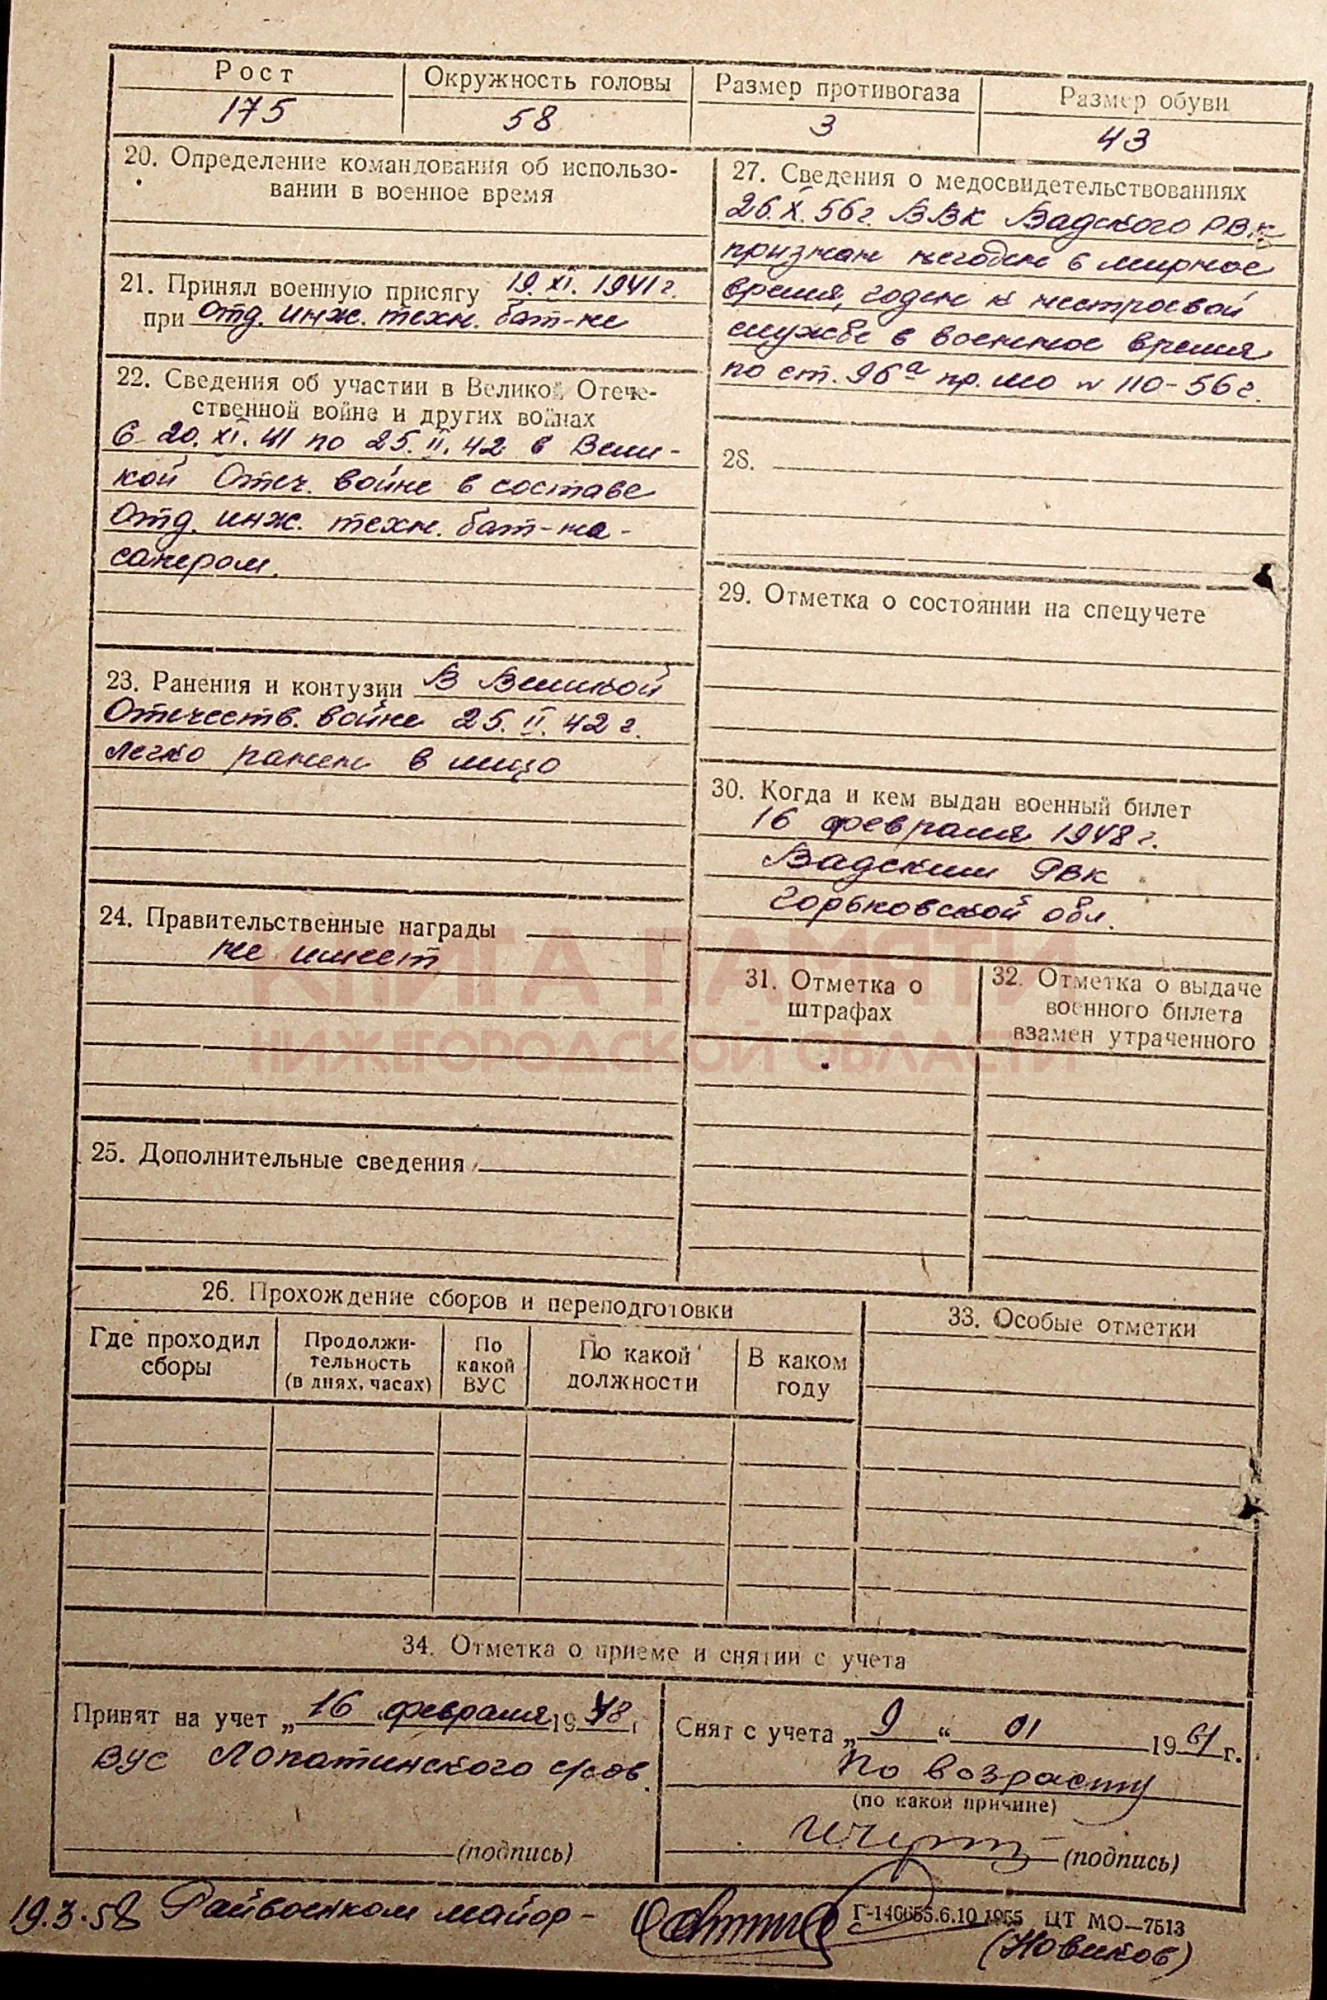 Рост
175
Окружность головы
58
Размер противогаза
3
Размер обуви
43
20. Определение командования об использо-
вании в военное время
21. Принял военную присягу 19.XI.1941г.
при Отд. инж. техн. бат-не
22. Сведения об участии в Великой Отече-
ственной войне и других войнах
С 20.XI.41 по 25.II.42 в Вели-
кой Отеч. войне в составе
Отд. инж. техн. бат-на -
сапером.
23. Ранения и контузии В Великой
Отечеств. войне 25.II.42 г.
легко ранен в лицо
24. Правительственные награды
не имеет
25. Дополнительные сведения
27. Сведения о медосвидетельствованиях
26.X.56г. ВВК Вадского РВК
признан негоден в мирное
время, годен к нестроевой
службе в военное время
по ст. 96а пр. МО № 110-56г.
28.
29. Отметка о состоянии на спецучете
30. Когда и кем выдан военный билет
16 февраля 1948 г.
Вадским РВК
Горьковской обл.
31. Отметка о
штрафах
32. Отметка о выдаче
военного билета
взамен утраченного
КНИГА ПАМЯТИ
НИЖЕГОРОДСКОЙ ОБЛАСТИ
26. Прохождение сборов и переподготовки
Где проходил
сборы
Продолжи-
тельность
(в днях, часах)
По
какой
ВУС
По какой
должности
В каком
году
33. Особые отметки
34. Отметка о приеме и снятии с учета
Принят на учет „16 февраля 1948 г.
ВУС Лопатинского с/сов.
(подпись)
Снят с учета „9“ 01 1961 г.
По возрасту
(по какой причине)
(подпись)
19.3.58 Райвоенком майор -
(Новиков)
Г-146655.6.10.1955 ЦТ МО—7513